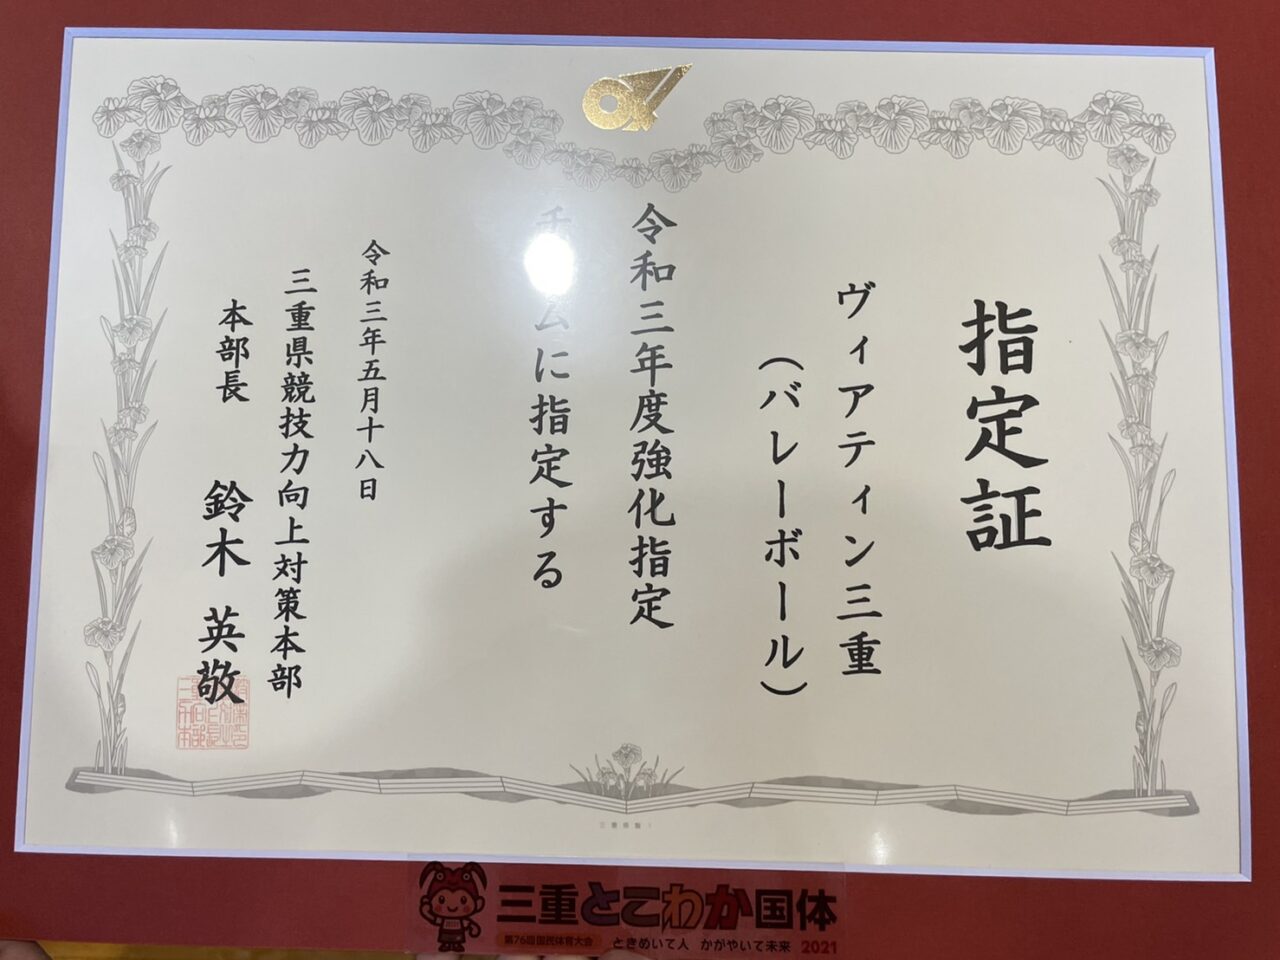 指定証
ヴィアティン三重
（バレーボール）
令和三年度強化指定
チームに指定する
令和三年五月十八日
三重県競技力向上対策本部
本部長　鈴木　英敬
三重とこわか国体
第76回国民体育大会
ときめいて人　かがやいて未来　2021